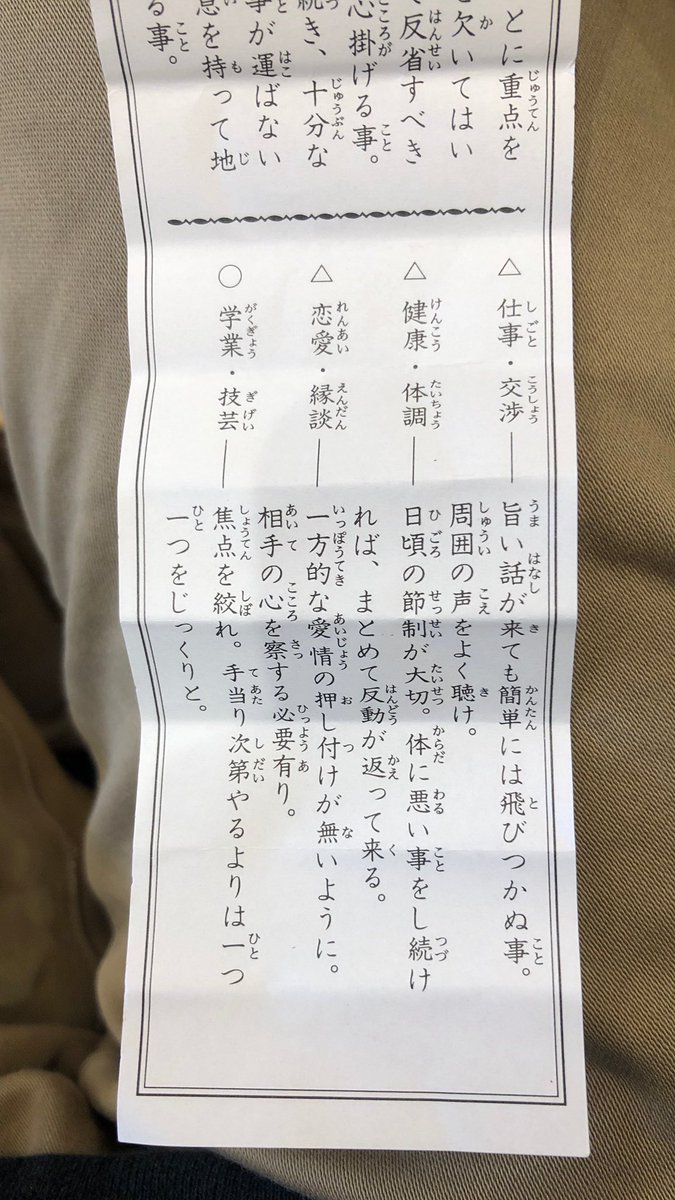 とに重点を
を欠いてはい
て反省すべき
心掛ける事。
続き、十分な
事が運ばない
息を持って地
る事。
△ 仕事・交渉―旨い話が来ても簡単には飛びつかぬ事。
周囲の声をよく聴け。
△ 健康・体調―日頃の節制が大切。体に悪い事をし続け
れば、まとめて反動が返って来る。
△ 恋愛・縁談―一方的な愛情の押し付けが無いように。
相手の心を察する必要有り。
○ 学業・技芸―焦点を絞れ。手当り次第やるよりは一つ
一つをじっくりと。